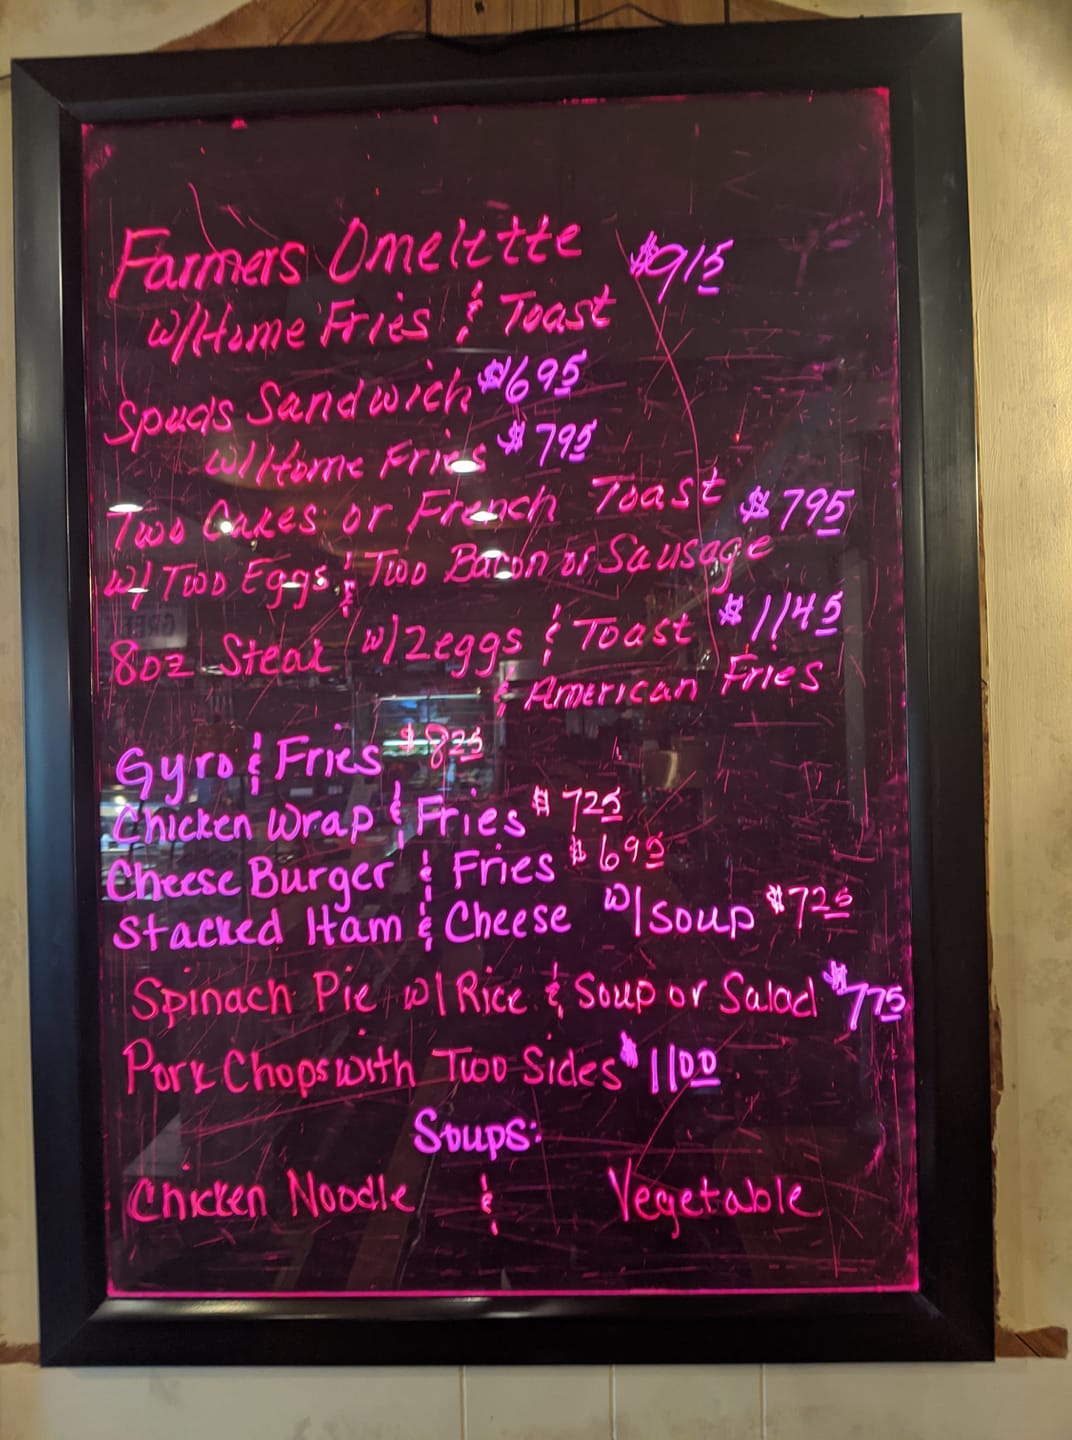 Farmers Omelette $915
w/Home Fries & Toast
Spuds Sandwich $695
w/Home Fries $795
Two Cakes or French Toast $795
w/ Two Eggs & Two Bacon or Sausage
8oz Steak w/2eggs & Toast $1145
& American Fries
Gyro & Fries $825
Chicken Wrap & Fries $725
Cheese Burger & Fries $695
Stacked Ham & Cheese w/Soup $725
Spinach Pie w/Rice & Soup or Salad $775
Pork Chops with Two Sides $1100
Soups:
Chicken Noodle & Vegetable